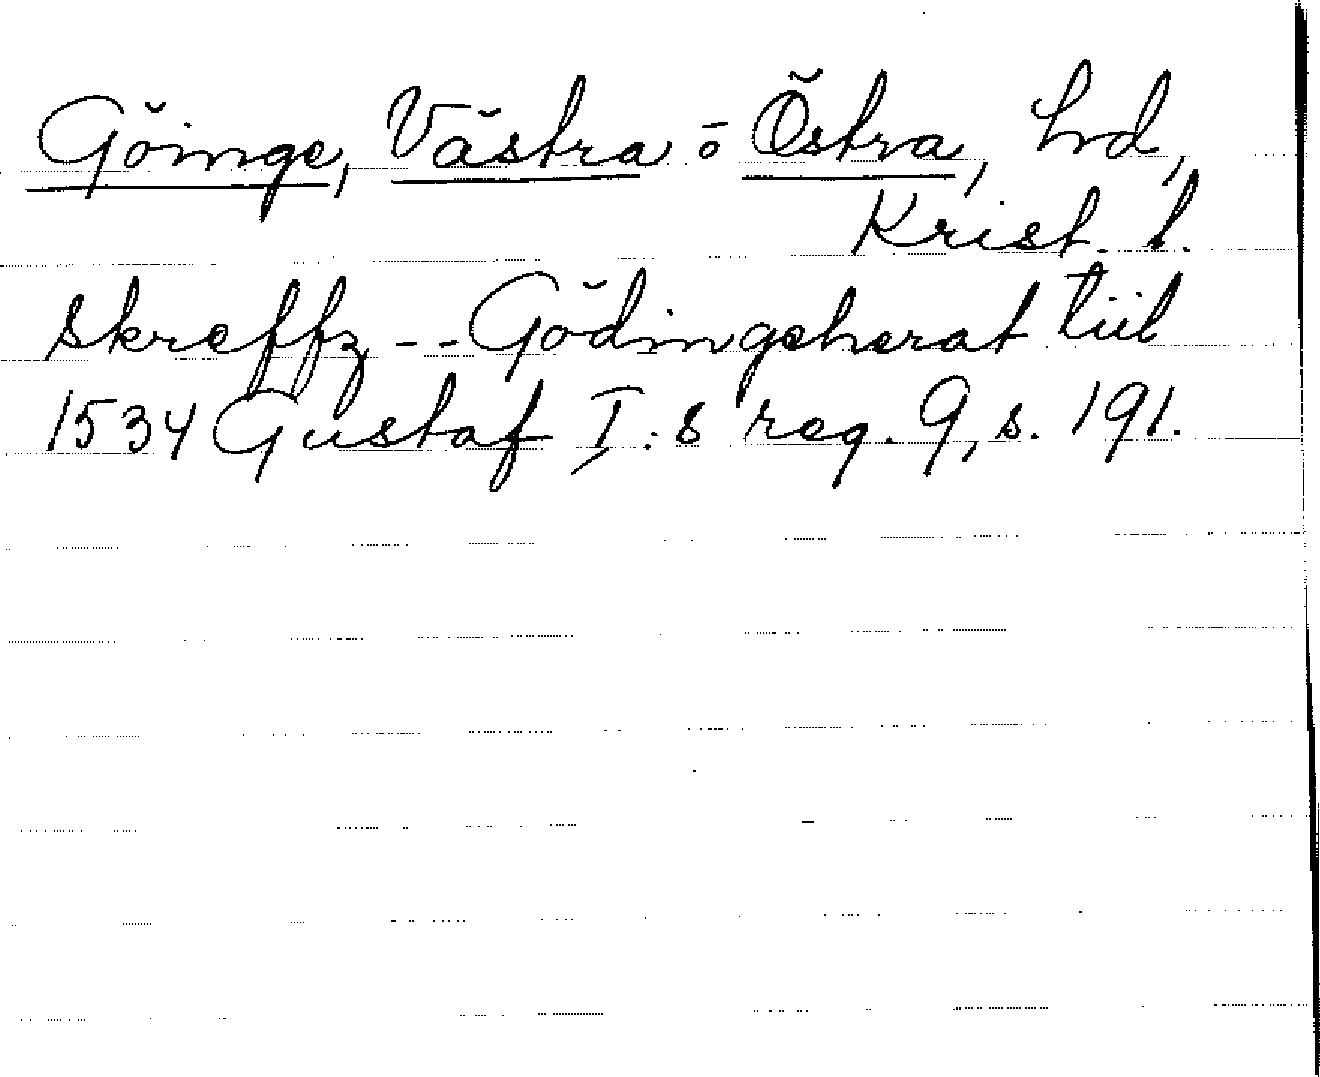 Göinge, Västra o Östra, hd,
Krist. l.
Skreffz -- Gödingeherat tiil
1534 Gustaf I:s reg. 9, s. 191.